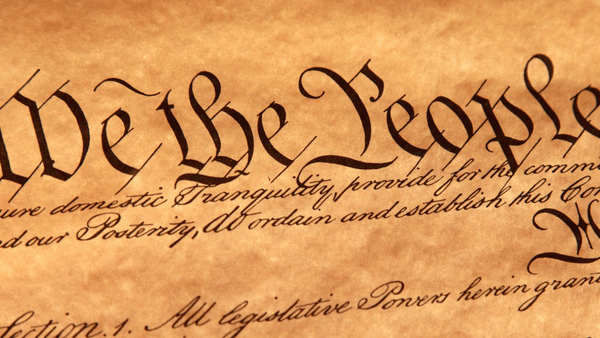 We the People
ure domestic Tranquility, provide for the comm
nd our Posterity, do ordain and establish this Con
Section. 1. All legislative Powers herein gran